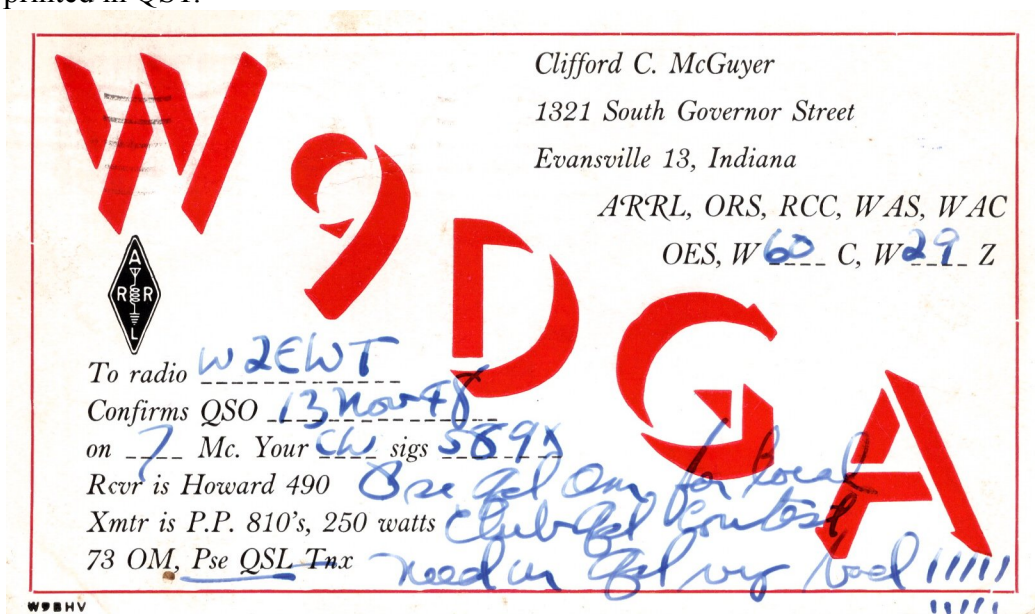 printed in QST.
W9DGA
Clifford C. McGuyer
1321 South Governor Street
Evansville 13, Indiana
ARRL, ORS, RCC, WAS, WAC
OES, W 60 C, W 29 Z
A
R R
L
To radio W2EWT
Confirms QSO 13 Nov 48
on 7 Mc. Your CW sigs 589X
Rcvr is Howard 490 Pse Qsl Om, for local
Xmtr is P.P. 810's, 250 watts Club Qsl Contest,
73 OM, Pse QSL Tnx need ur Qsl vry bad !!!!!
W9BHV